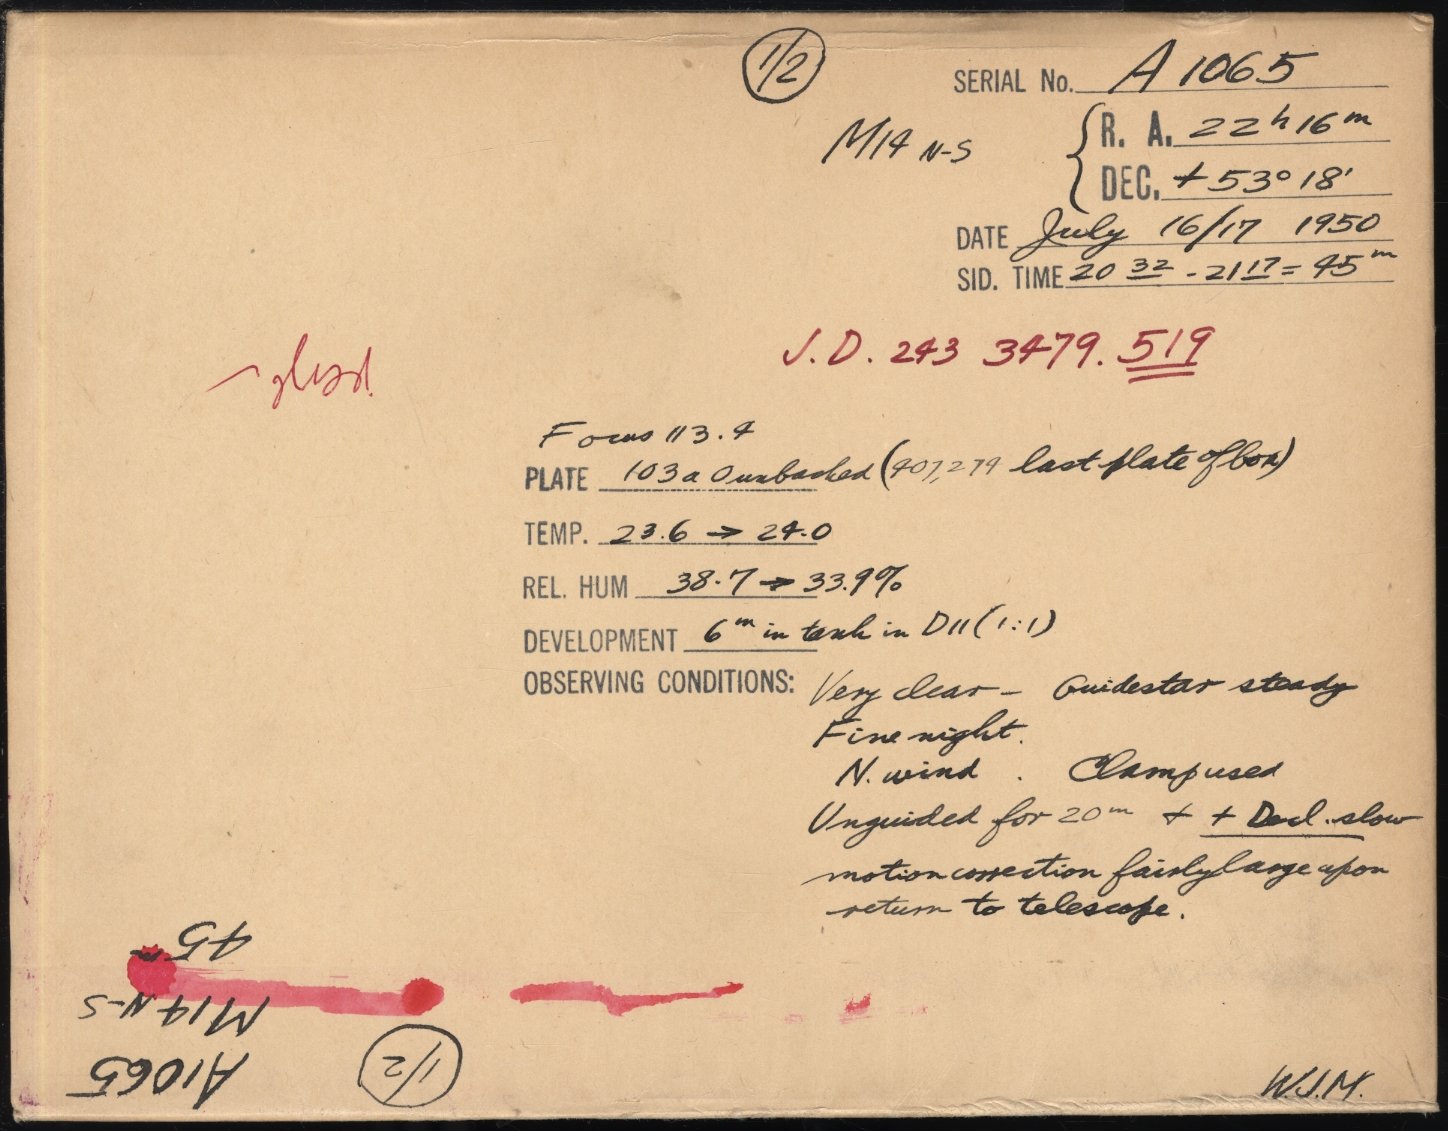 1/2
SERIAL No. A 1065
M14 N-S
R. A. 22 h 16 m
DEC. + 53° 18'
DATE July 16/17 1950
SID. TIME 20 32 - 21 17 = 45 m
J.D. 243 3479.519
Focus 113.4
PLATE 103a O unbacked (407,274 last plate of box)
TEMP. 23.6 → 24.0
REL. HUM 38.7 → 33.9%
DEVELOPMENT 6 m in tank in D11 (1:1)
OBSERVING CONDITIONS: Very clear - Guidestar steady
Fine night.
N. wind. Clamp used
Unguided for 20 m + + Decl. slow
motion correction fairly large upon
return to telescope.
45 m
M14 N-S
A1065
1/2
W.J.M.